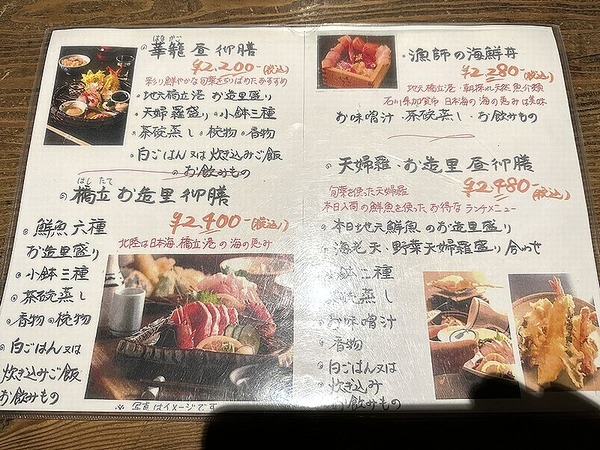 はなかご
◎華籠 昼御膳
¥2,200-(税込)
彩り鮮やかな旬菜を切りばめたおすすめ
◎地元橋立港 お造里盛り
◎天婦羅盛り ◎小鉢三種
◎茶碗蒸し ◎椀物 ◎香物
◎白ごはん又は炊き込みご飯
◎お飲みもの
はしたて
◎橋立お造里御膳
¥2,400-(税込)
北陸は日本海、橋立港の海の恵み
◎鮮魚六種
お造里盛り
◎小鉢三種
◎茶碗蒸し
◎香物 ◎椀物
◎白ごはん又は
炊き込みご飯
お飲みもの
※写真はイメージです
・漁師の海鮮丼
¥2,280-(税込)
地元橋立港・朝採れ天然魚介類
石川県加賀市 日本海の海の恵みは美味
お味噌汁・茶碗蒸し・お飲みもの
・天婦羅・お造里 昼御膳
¥2,480-(税込)
旬菜を使った天婦羅
本日入荷の鮮魚を使ったお得なランチメニュー
◎本日地元鮮魚のお造里盛り
◎海老天・野菜天婦羅盛り合わせ
小鉢二種
茶碗蒸し
お味噌汁
◎香物
◎白ごはん又は
炊き込み
お飲みもの